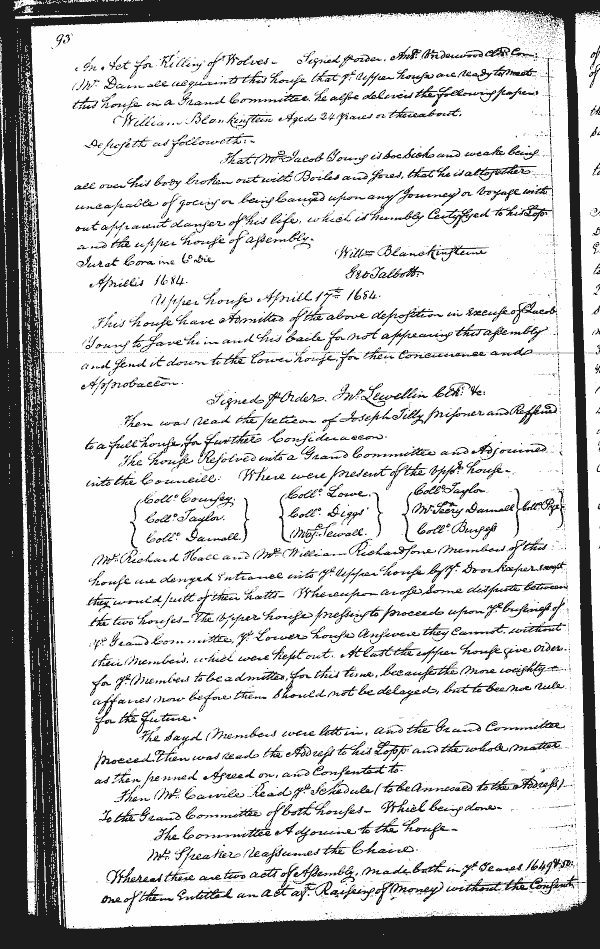 93
An Act for Killing of Wolves - Signed p order. Anth Underwood Clk Com:
Mr. Darnall acquaints this house that ye Upper house are ready to meet
this house in a Grand Committee, he alsoe delivers the following paper.
William Blankinstein Aged 24 Yeares or thereabout.
Deposeth as followeth:-
That Mr. Jacob Young is soe sick and weake being
all over his body broken out with Boiles and sores, that he is altogether
uncapable of goeing or being Carryed upon any Journey or Voyage with
out apparent danger of his life, which is humbly Certifyed to his Losp
and the upper house of assembly.
Jurat Coram me Die
Willm Blanckinsteine
Aprillis 1684.
Geo Talbott
Upper house Aprill 17th 1684.
This house have Admitted of the above deposition in excuse of Jacob
Young to save him and his baile for not appearing this assembly
and send it down to the lower house, for their Concurrence and
Approbaccon.
Signed p Order. Jno. Lewellin Clk. &c.
Then was read the peticon of Joseph Tilly, prisoner and Reffered
to a full house for further Consideraccon.
The house Resolved into a Grand Committee and Adjourned
into the Councill. Where were present of the uppr. house-
Collo. Coursey. Collo. Lowe. Collo. Taylor
Collo. Taylor. Collo. Diggs Mr. Darnall Collo. Pye
Collo. Darnall. Majr. Sewall. Collo. Burgess
Mr. Richard Hall and Mr. William Richardsone Members of this
house are denyed Entrance into ye Upper house by ye Doorkeeper, except
they would pull of their hatts - Whereupon arose some dispute between
the two houses - The Upper house pressing to proceed upon ye business of
ye Grand Committee, ye Lower house Answere they cannot, without
their Members, which were kept out. At last the upper house give order
for ye Members to be admitted, for this time, because the more weighty
affaires now before them should not be delayed, but to bee noe rule
for the future.
The sayd Members were lett in, and the Grand Committee
proceed. Then was read the Address to his Lopp and the whole matter
as then penned Agreed on, and Consented to.
Then Mr. Carvile Read ye Schedule (to be Annexed to the Address)
To the Grand Committee of both houses - Which being done -
The Committee Adjourne to the house -
Mr. Speaker reassumes the Chaire.
Whereas there are two acts of Assembly, made both in ye Yeares 1649 & 50:
one of them Entitled an Act agt. Raiseing of Money without the Consent